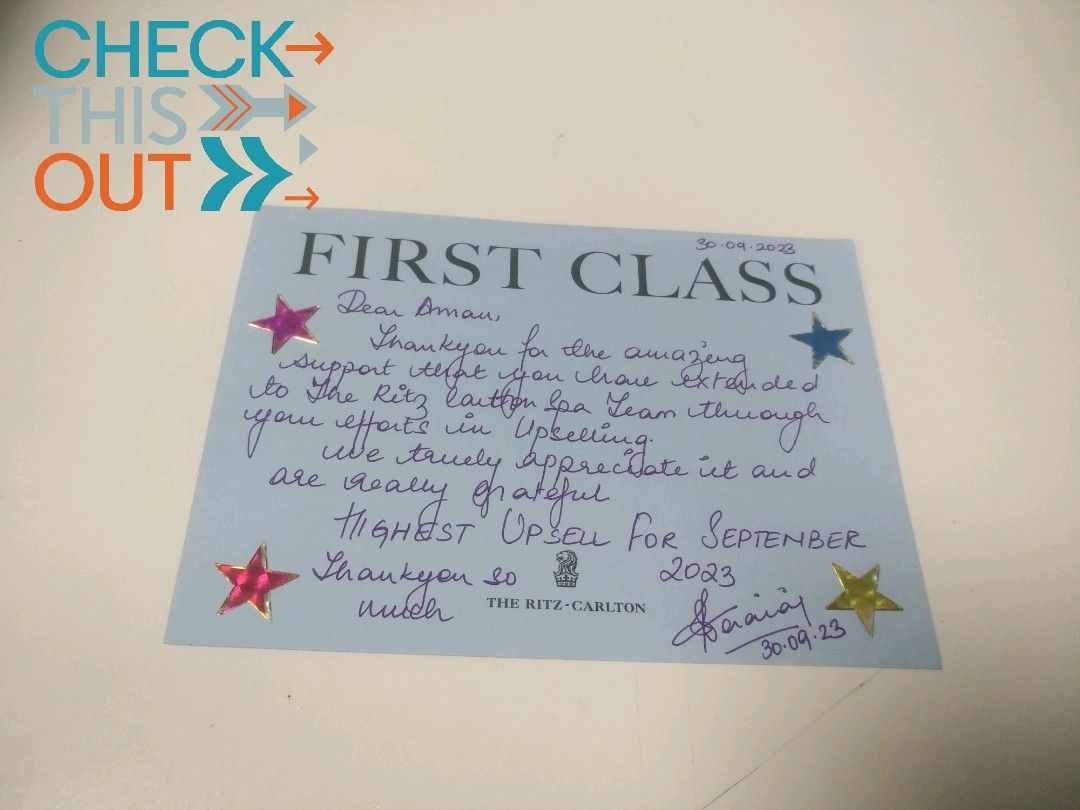 CHECK
THIS
OUT
30.09.2023
FIRST CLASS
Dear Aman,
Thankyou for the amazing
support that you have extended
to The Ritz Carlton Spa Team through
your efforts in Upselling.
We truely appreciate it and
are really grateful
HIGHEST UPSELL FOR SEPTEMBER
2023
Thankyou so
much
THE RITZ-CARLTON
30.09.23